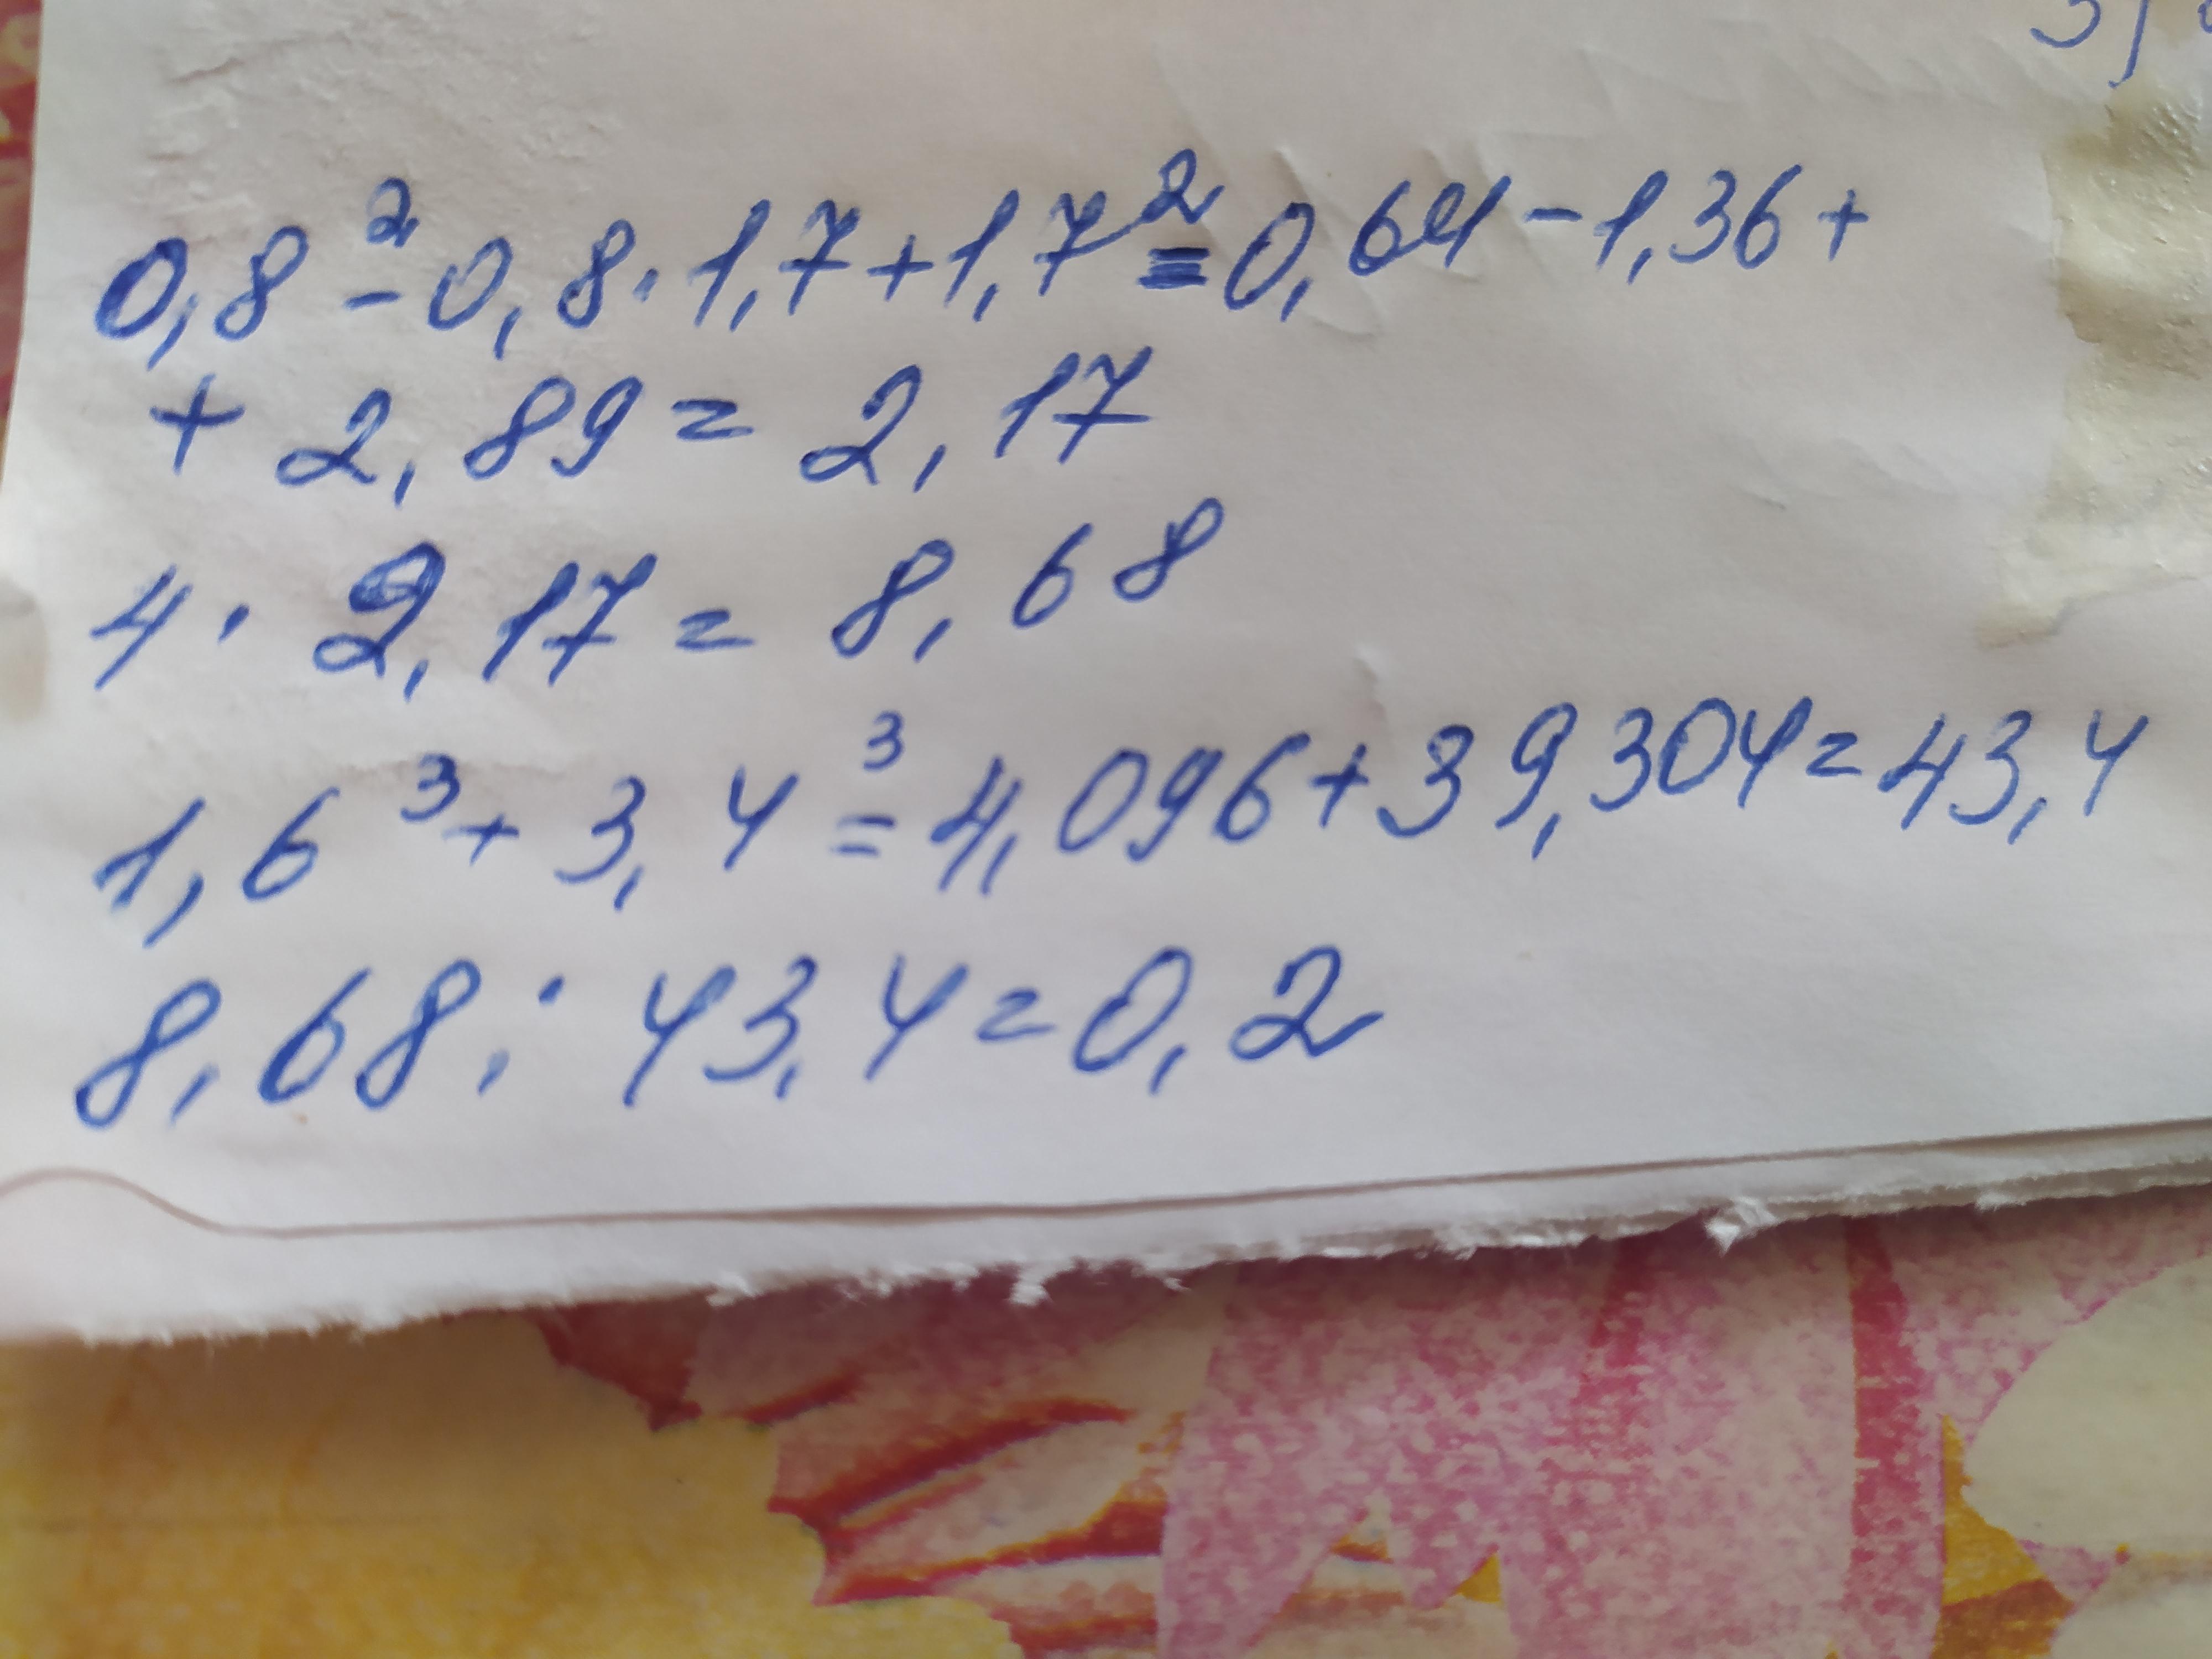 0,8² - 0,8 · 1,7 + 1,7² = 0,64 - 1,36 +
+ 2,89 = 2,17
4 · 2,17 = 8,68
1,6³ + 3,4³ = 4,096 + 39,304 = 43,4
8,68 : 43,4 = 0,2